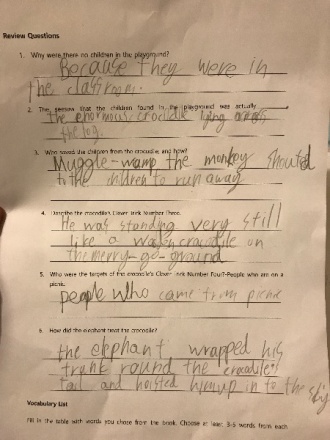 Review Questions
1. Why were there no children in the playground?
Because they were in
the classroom.
2. The seesaw that the children found in the playground was actually
the enormous crocodile lying across
the log.
3. Who saved the children from the crocodile, and how?
Muggle-wump the monkey shouted
to the children to run away
4. Describe the crocodile's Clever Trick Number Three.
He was standing very still
like a wooden crocodile on
the merry-go-ground
5. Who were the targets of the crocodile's Clever Trick Number Four? People who are on a
picnic.
people who came from picnic
6. How did the elephant treat the crocodile?
the elephant wrapped his
trunk round the crocodile's
tail and hoisted him up in to the sky
Vocabulary List
Fill in the table with words you chose from the book. Choose at least 3-5 words from each